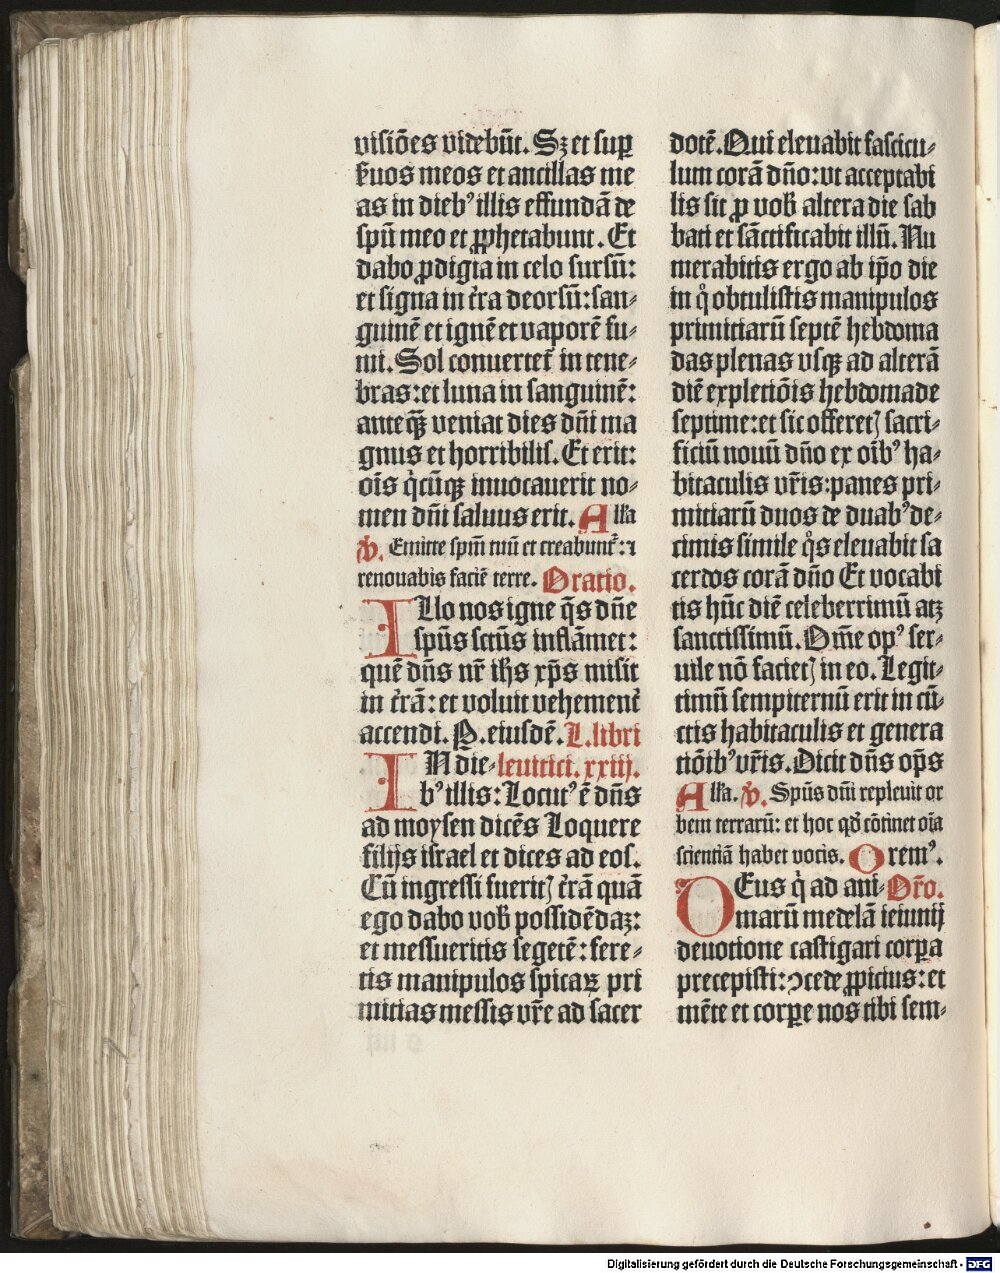 visiões videbūt. Sꝫ et suꝑ
ẜuos meos et ancillas me
as in dieb⁹ illis effundā de
spū meo et ꝓphetabunt. Et
dabo ꝓdigia in celo sursū:
et signa in t̃ra deorsū: san⸗
guinē et ignē et vaporē fu⸗
mi. Sol conuertet̃ in tene⸗
bras: et luna in sanguinē:
anteqꝫ̄ veniat dies dñi ma
gnus et horribilis. Et erit:
oīs q̇cūqꝫ inuocauerit no⸗
men dñi saluus erit. Alľa
℣. Emitte spm̄ tuū et creabunt̃: ⁊
renouabis faciē terre. Oratio.
ILlo nos igne q̄s dñe
spūs sctūs inflāmet:
quē dñs nr̄ ihs xp̄s misit
in t̃rā: et voluit vehement̃
accendi. P. eiusdē. L. libri
IN die⸗ leuitici. xxiij.
b⁹ illis: Locut⁹ ē dñs
ad moysen dicēs Loquere
filijs israel et dices ad eos.
Cū ingressi fueritꝭ t̃rā quā
ego dabo vob̄ possidēdaꝫ:
et messueritis segetē: fere⸗
tis manipulos spicaꝝ pri
mitias messis vr̄e ad sacer
dotē. Qui eleuabit fascicu⸗
lum corā dño: vt acceptabi
lis sit ꝓ vob̄ altera die sab
bati et sāctificabit illū. Nu
merabitis ergo ab ip̄o die
in q̊ obtulistis manipulos
primitiarū septē hebdoma
das plenas vsqꝫ ad alterā
diē expletiōis hebdomade
septime: et sic offeretꝭ sacri⸗
ficiū nouū dño ex oīb⁹ ha⸗
bitaculis vr̄is: panes pri⸗
mitiarū duos de duab⁹ de⸗
cimis simile q̊s eleuabit sa
cerdos corā dño Et vocabi
tis hūc diē celeberrimū atꝫ
sanctissimū. Om̄e op⁹ ser⸗
uile nō facietꝭ in eo. Legit⸗
timū sempiternū erit in cū⸗
ctis habitaculis et genera
tiōib⁹ vr̄is. Dicit dñs op̄s
Alľa. ℣. Spūs dñi repleuit or
bem terrarū: et hoc qđ cōtinet oīa
scientiā habet vocis. Orem⁹.
DEus q̇ ad ani⸗ Or̄o.
marū medelā ieiunij
deuotione castigari corꝑa
precepisti: ↄcede ꝓpicius: et
mēte et corꝑe nos tibi sem⸗
Digitalisierung gefördert durch die Deutsche Forschungsgemeinschaft - DFG